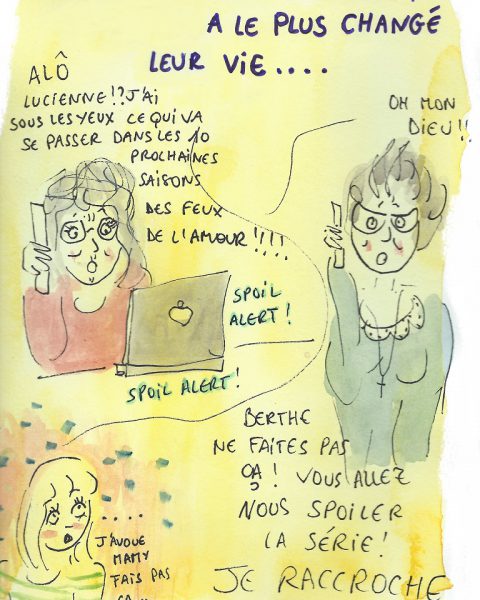 A LE PLUS CHANGÉ
LEUR VIE....
ALÔ
LUCIENNE!?J'AI
SOUS LES YEUX CE QUI VA
SE PASSER DANS LES 10
PROCHAINES
SAISONS
DES FEUX
DE L'AMOUR!!!!
OH MON
DIEU!!
SPOIL
ALERT!
SPOIL ALERT!
BERTHE
NE FAITES PAS
ÇA! VOUS ALLEZ
NOUS SPOILER
LA SÉRIE!
JE RACCROCHE
....
J'AVOUE
MAMY
FAIS PAS
ÇA...